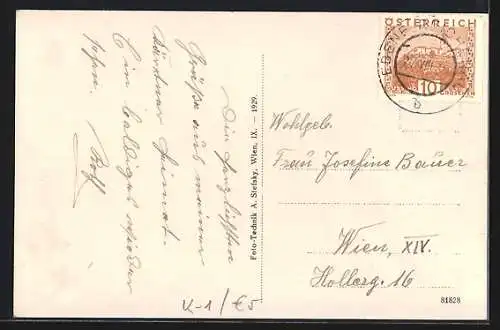 Die herzlichsten
Grüße aus meiner
Kärntner Heimat.
Ein baldiges Wieder
sehn. Rolf
Foto-Technik A. Stefsky, Wien, IX. — 1929.
ÖSTERREICH
10
GROSCHEN
b
Wohlgeb.
Frau Josefine Bauer
Wien, XIV.
Hollerg. 16
K-1/€5
81828